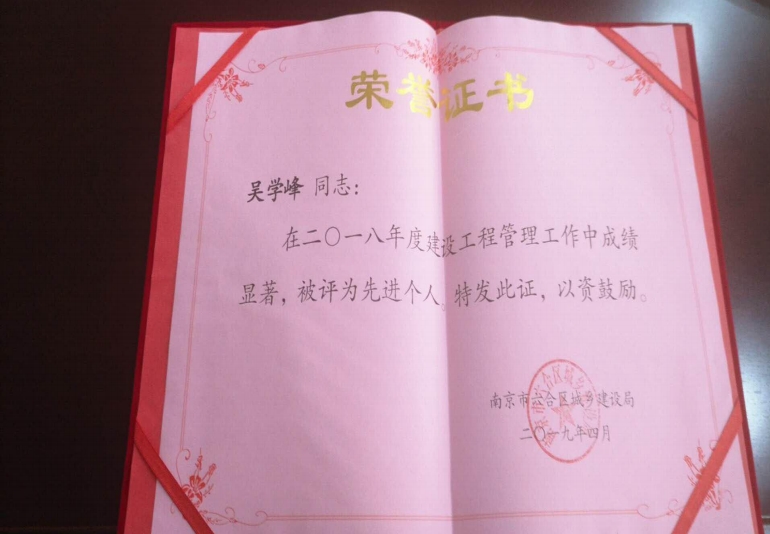 荣誉证书
吴学峰 同志：
在二〇一八年度建设工程管理工作中成绩
显著，被评为先进个人。特发此证，以资鼓励。
南京市六合区城乡建设局
二〇一九年四月